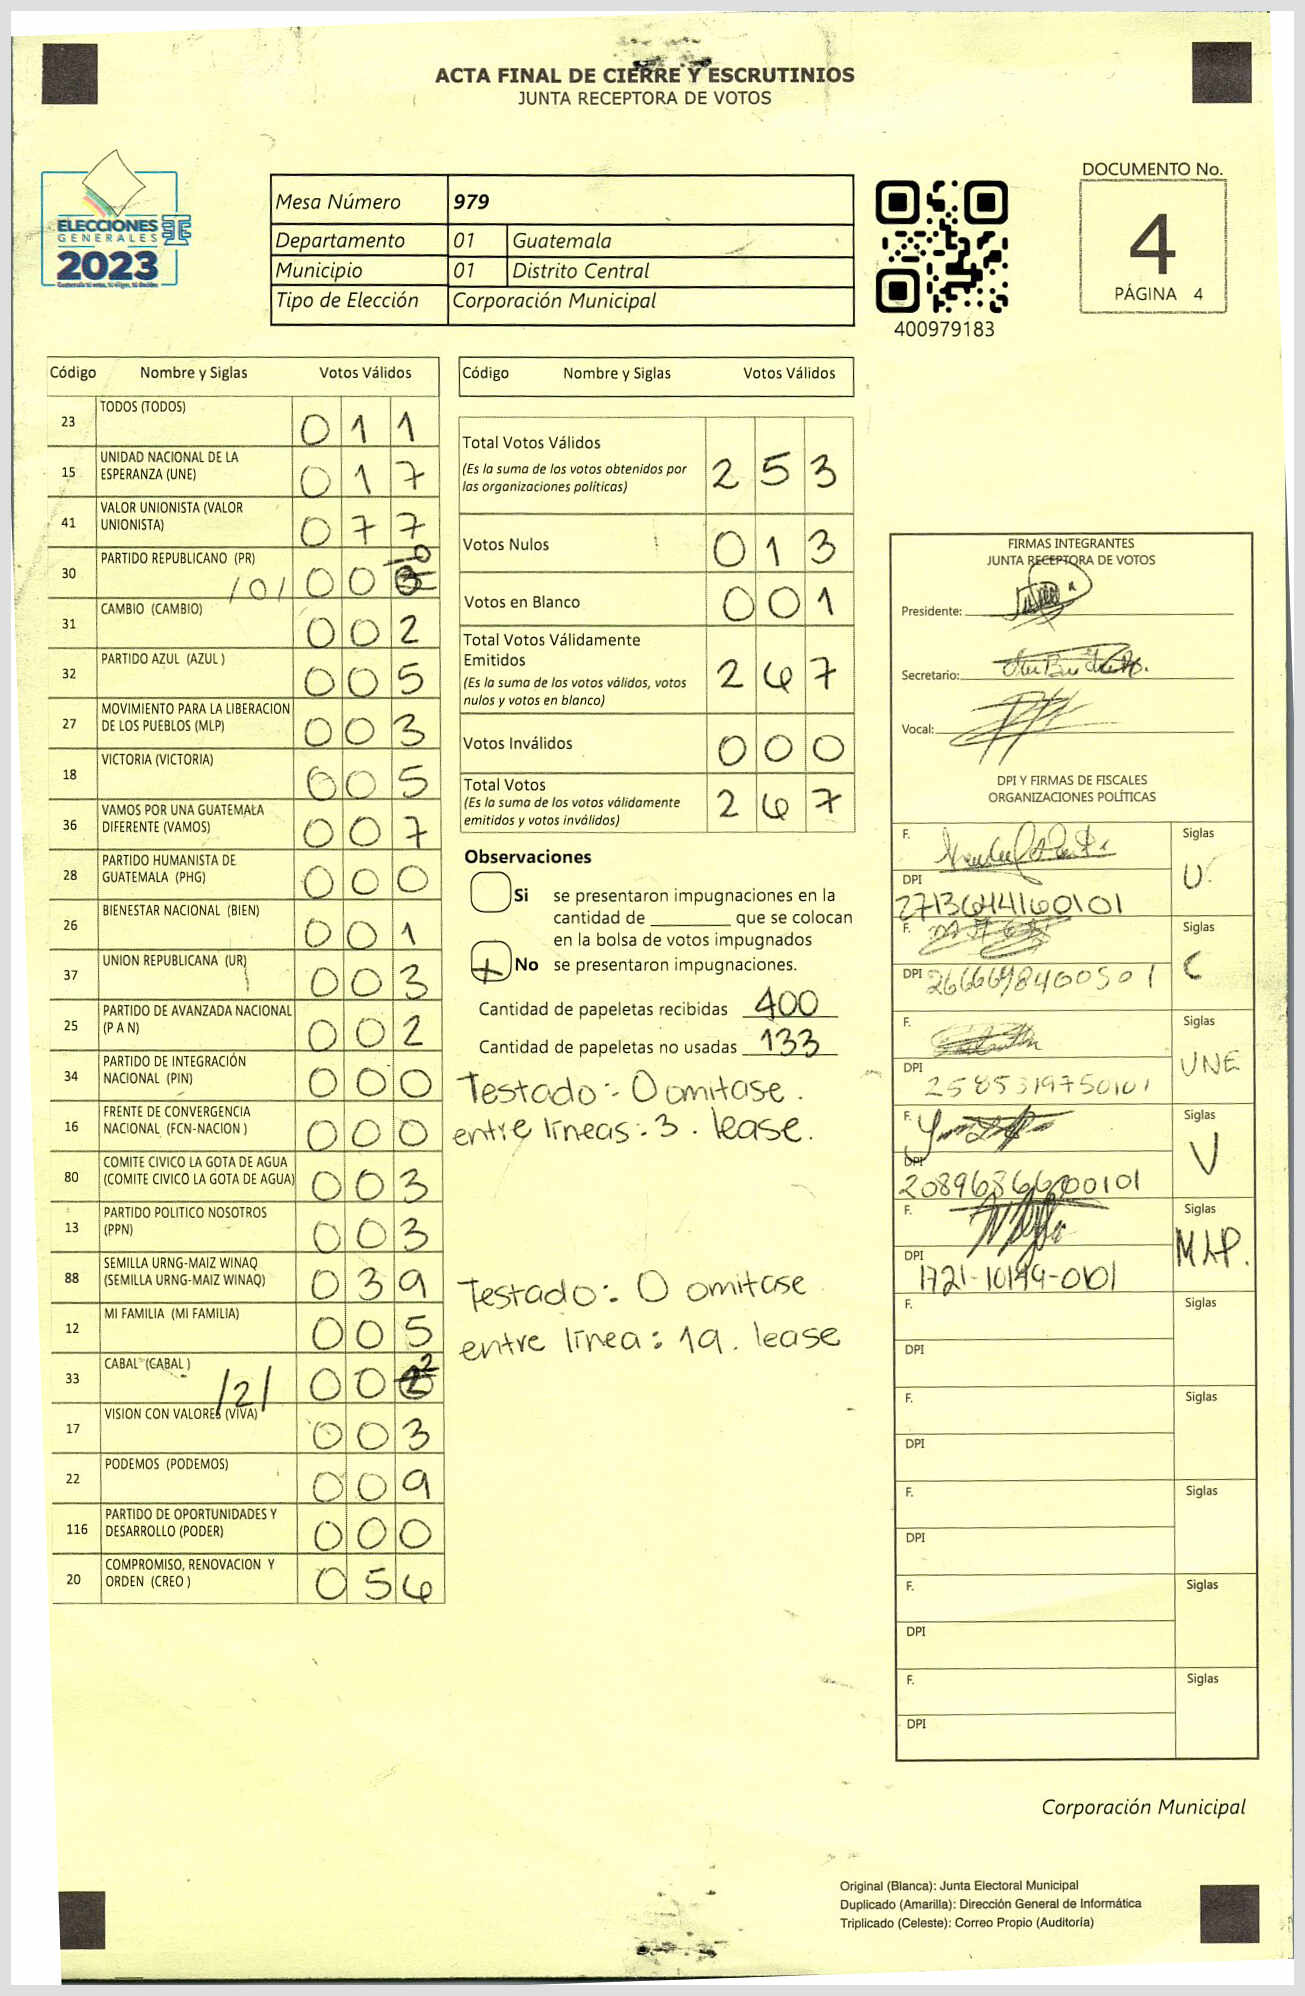 ACTA FINAL DE CIERRE Y ESCRUTINIOS
JUNTA RECEPTORA DE VOTOS
ELECCIONES
GENERALES
2023
Mesa Número 979
Departamento 01 Guatemala
Municipio 01 Distrito Central
Tipo de Elección Corporación Municipal
400979183
DOCUMENTO No.
4
PÁGINA 4
Código Nombre y Siglas Votos Válidos
23 TODOS (TODOS) 0 1 1
15 UNIDAD NACIONAL DE LA
ESPERANZA (UNE) 0 1 7
41 VALOR UNIONISTA (VALOR
UNIONISTA) 0 7 7
30 PARTIDO REPUBLICANO (PR) /0/ 0 0
31 CAMBIO (CAMBIO) 0 0 2
32 PARTIDO AZUL (AZUL ) 0 0 5
27 MOVIMIENTO PARA LA LIBERACION
DE LOS PUEBLOS (MLP) 0 0 3
18 VICTORIA (VICTORIA) 0 0 5
36 VAMOS POR UNA GUATEMALA
DIFERENTE (VAMOS) 0 0 7
28 PARTIDO HUMANISTA DE
GUATEMALA (PHG) 0 0 0
26 BIENESTAR NACIONAL (BIEN) 0 0 1
37 UNION REPUBLICANA (UR) 0 0 3
25 PARTIDO DE AVANZADA NACIONAL
(P A N) 0 0 2
34 PARTIDO DE INTEGRACIÓN
NACIONAL (PIN) 0 0 0
16 FRENTE DE CONVERGENCIA
NACIONAL (FCN-NACION ) 0 0 0
80 COMITE CIVICO LA GOTA DE AGUA
(COMITE CIVICO LA GOTA DE AGUA) 0 0 3
13 PARTIDO POLITICO NOSOTROS
(PPN) 0 0 3
88 SEMILLA URNG-MAIZ WINAQ
(SEMILLA URNG-MAIZ WINAQ) 0 3 9
12 MI FAMILIA (MI FAMILIA) 0 0 5
33 CABAL (CABAL ) /2/ 0 0 2
17 VISION CON VALORES (VIVA) 0 0 3
22 PODEMOS (PODEMOS) 0 0 9
116 PARTIDO DE OPORTUNIDADES Y
DESARROLLO (PODER) 0 0 0
20 COMPROMISO, RENOVACION Y
ORDEN (CREO ) 0 5 6
Código Nombre y Siglas Votos Válidos
Total Votos Válidos
(Es la suma de los votos obtenidos por
las organizaciones políticas) 2 5 3
Votos Nulos 0 1 3
Votos en Blanco 0 0 1
Total Votos Válidamente
Emitidos
(Es la suma de los votos válidos, votos
nulos y votos en blanco) 2 6 7
Votos Inválidos 0 0 0
Total Votos
(Es la suma de los votos válidamente
emitidos y votos inválidos) 2 6 7
Observaciones
Si se presentaron impugnaciones en la
cantidad de ________ que se colocan
en la bolsa de votos impugnados
No se presentaron impugnaciones.
Cantidad de papeletas recibidas 400
Cantidad de papeletas no usadas 133
Testado: 0 omitase.
entre lineas: 3. lease.
Testado: 0 omitase
entre línea: 19. lease
FIRMAS INTEGRANTES
JUNTA RECEPTORA DE VOTOS
Presidente:
Secretario:
Vocal:
DPI Y FIRMAS DE FISCALES
ORGANIZACIONES POLÍTICAS
F. Siglas
U.
DPI
2713644160101
F. Siglas
C
DPI 2666698400501
F. Siglas
UNE
DPI
2585319750101
F. Siglas
V
DPI
2089686600101
F. Siglas
MLP.
DPI
1721-10199-0101
F. Siglas
DPI
F. Siglas
DPI
F. Siglas
DPI
F. Siglas
DPI
F. Siglas
DPI
Corporación Municipal
Original (Blanca): Junta Electoral Municipal
Duplicado (Amarilla): Dirección General de Informática
Triplicado (Celeste): Correo Propio (Auditoría)